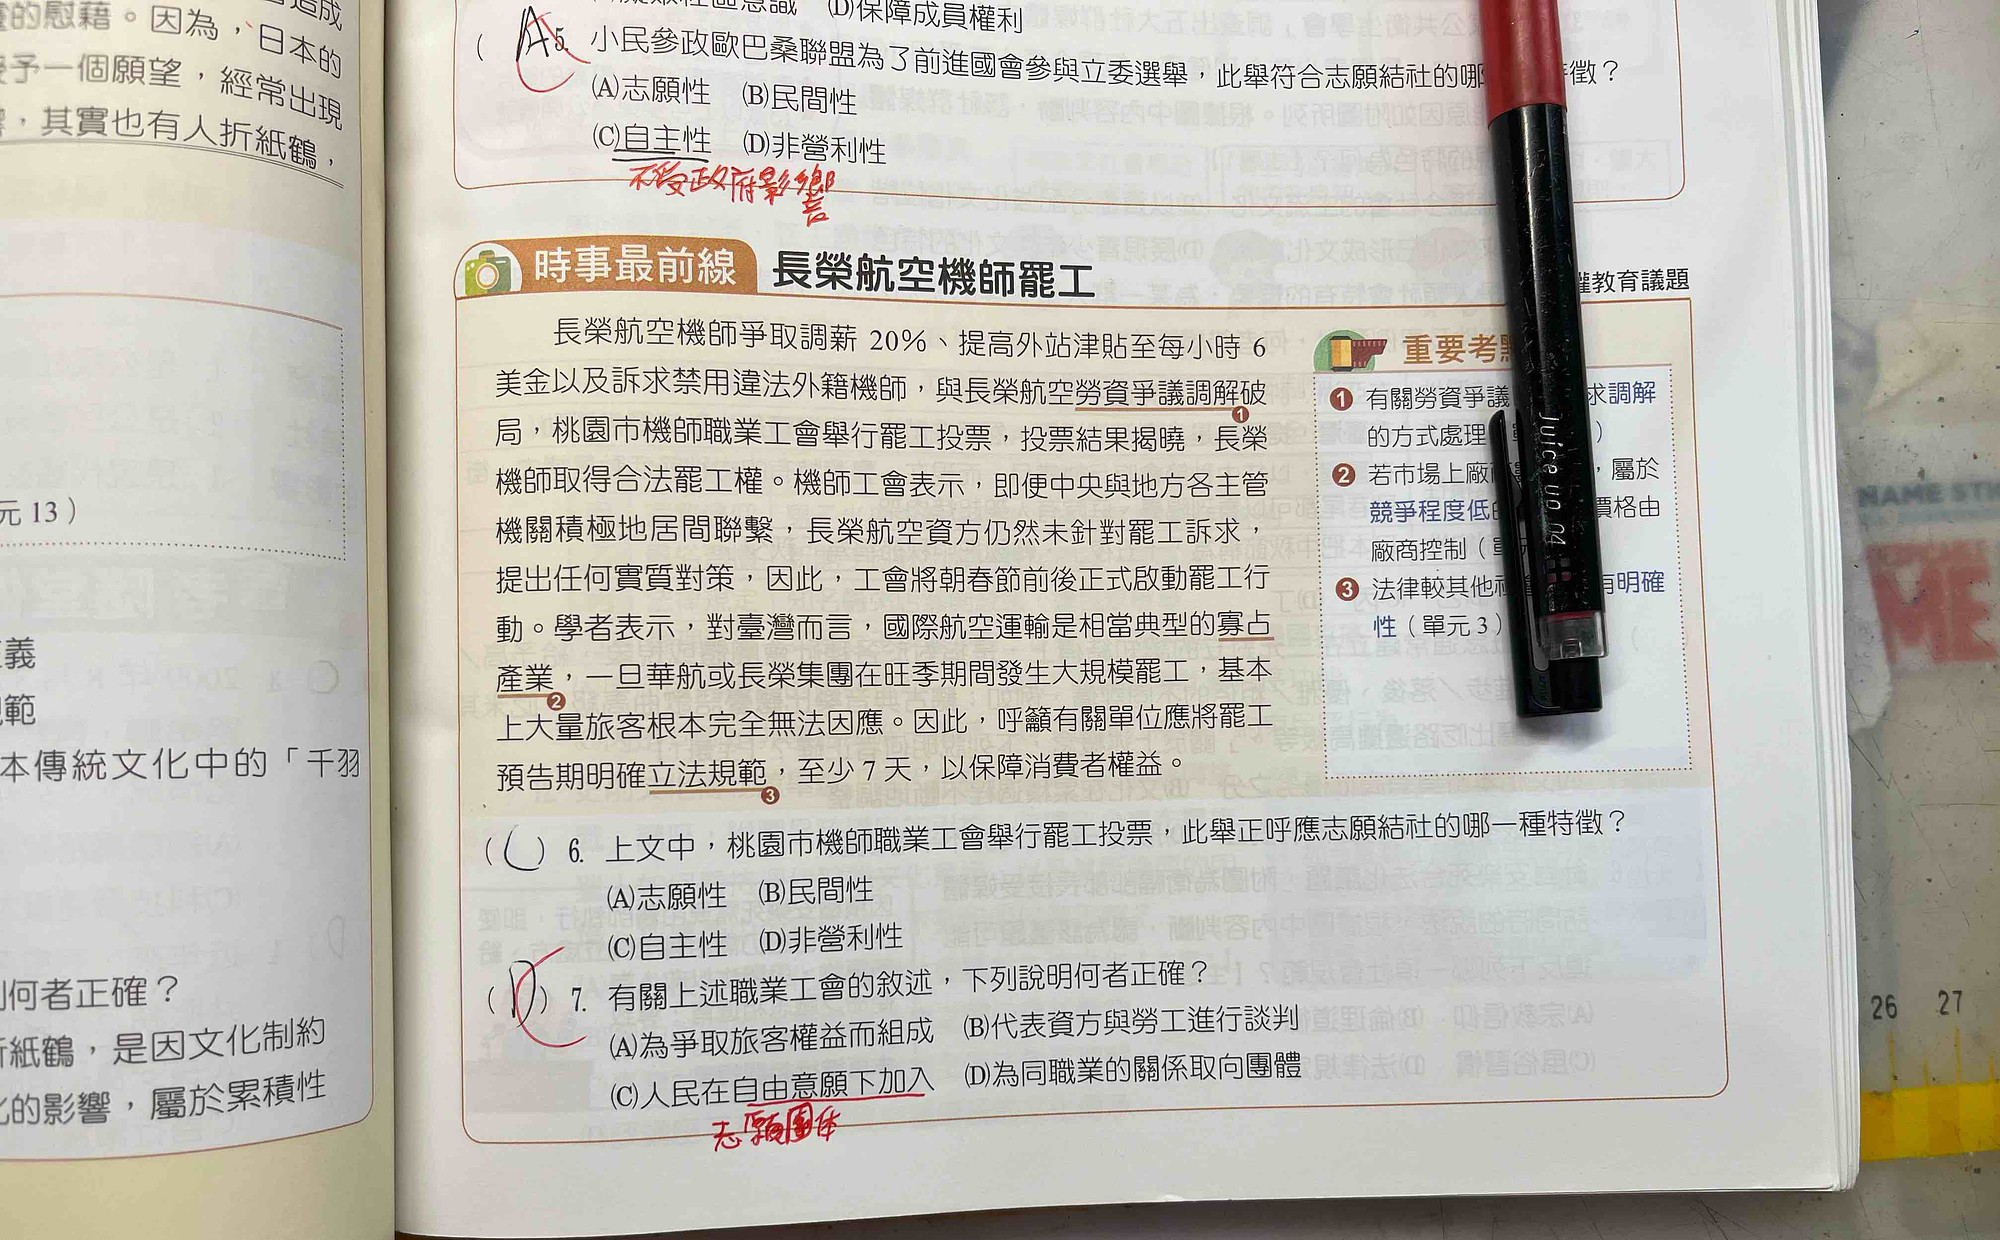 造成
的慰藉。因為，日本的
予一個願望，經常出現
，其實也有人折紙鶴，
元 13）
義
範
本傳統文化中的「千羽
何者正確？
紙鶴，是因文化制約
的影響，屬於累積性
社區意識 (D)保障成員權利
( A 5. 小民參政歐巴桑聯盟為了前進國會參與立委選舉，此舉符合志願結社的哪 徵？
(A)志願性 (B)民間性
(C)自主性 (D)非營利性
不受政府影響
時事最前線 長榮航空機師罷工
權教育議題
長榮航空機師爭取調薪 20%、提高外站津貼至每小時 6
美金以及訴求禁用違法外籍機師，與長榮航空勞資爭議調解破
局，桃園市機師職業工會舉行罷工投票，投票結果揭曉，長榮
機師取得合法罷工權。機師工會表示，即便中央與地方各主管
機關積極地居間聯繫，長榮航空資方仍然未針對罷工訴求，
提出任何實質對策，因此，工會將朝春節前後正式啟動罷工行
動。學者表示，對臺灣而言，國際航空運輸是相當典型的寡占
產業，一旦華航或長榮集團在旺季期間發生大規模罷工，基本
上大量旅客根本完全無法因應。因此，呼籲有關單位應將罷工
預告期明確立法規範，至少 7 天，以保障消費者權益。
1
2
3
重要考點
1 有關勞資爭議 求調解
的方式處理 ）
2 若市場上廠商 ，屬於
競爭程度低的 價格由
廠商控制（單元
3 法律較其他社會 有明確
性（單元 3）
( C ) 6. 上文中，桃園市機師職業工會舉行罷工投票，此舉正呼應志願結社的哪一種特徵？
(A)志願性 (B)民間性
(C)自主性 (D)非營利性
( D ) 7. 有關上述職業工會的敘述，下列說明何者正確？
(A)為爭取旅客權益而組成 (B)代表資方與勞工進行談判
(C)人民在自由意願下加入 (D)為同職業的關係取向團體
志願團体
Juice up 04
NAME STI
ME
26 27